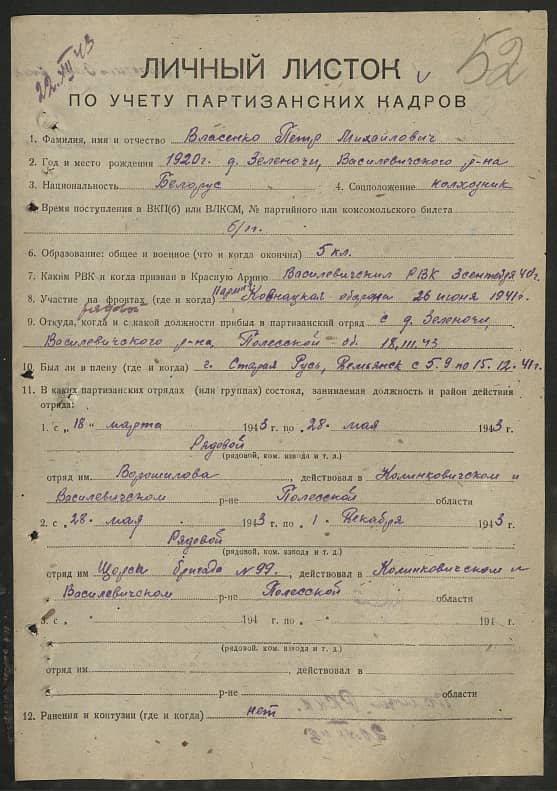 22.XII.43
52
ЛИЧНЫЙ ЛИСТОК
ПО УЧЕТУ ПАРТИЗАНСКИХ КАДРОВ
1. Фамилия, имя и отчество Власенко Петр Михайлович
2. Год и место рождения 1920г. д. Зеленочи, Василевичского р-на
3. Национальность Белорус 4. Соцположение колхозник
5. Время поступления в ВКП(б) или ВЛКСМ, № партийного или комсомольского билета
б/п.
6. Образование: общее и военное (что и когда окончил) 5 кл.
7. Каким РВК и когда призван в Красную Армию Василевичский РВК 3 сентября 40г.
8. Участие на фронтах (где и когда) оборона 26 июня 1941г.
рядовой
9. Откуда, когда и с какой должности прибыл в партизанский отряд с д. Зеленочи,
Василевичского р-на, Полесской об. 18.III.43
10. Был ли в плену (где и когда) г. Старая Русь, Демьянск с 5.9 по 15.12.41г.
11. В каких партизанских отрядах (или группах) состоял, занимаемая должность и район действия
отряда:
1. с „18" марта 1943 г. по „28" мая 1943 г.
Рядовой
(рядовой, ком. взвода и т. д.)
отряд им. Ворошилова, действовал в Колинковичском и
Василевичском р-не Полесской области
2. с „28" мая 1943 г. по „1" Декабря 1943 г.
Рядовой
(рядовой, ком. взвода и т. д.)
отряд им. Щорса бригада N99., действовал в Колинковичском и
Василевичском р-не Полесской области
3. с „ " 194 г. по „ " 194 г.
(рядовой, ком. взвода и т. д.)
отряд им. действовал в
р-не области
12. Ранения и контузии (где и когда) нет